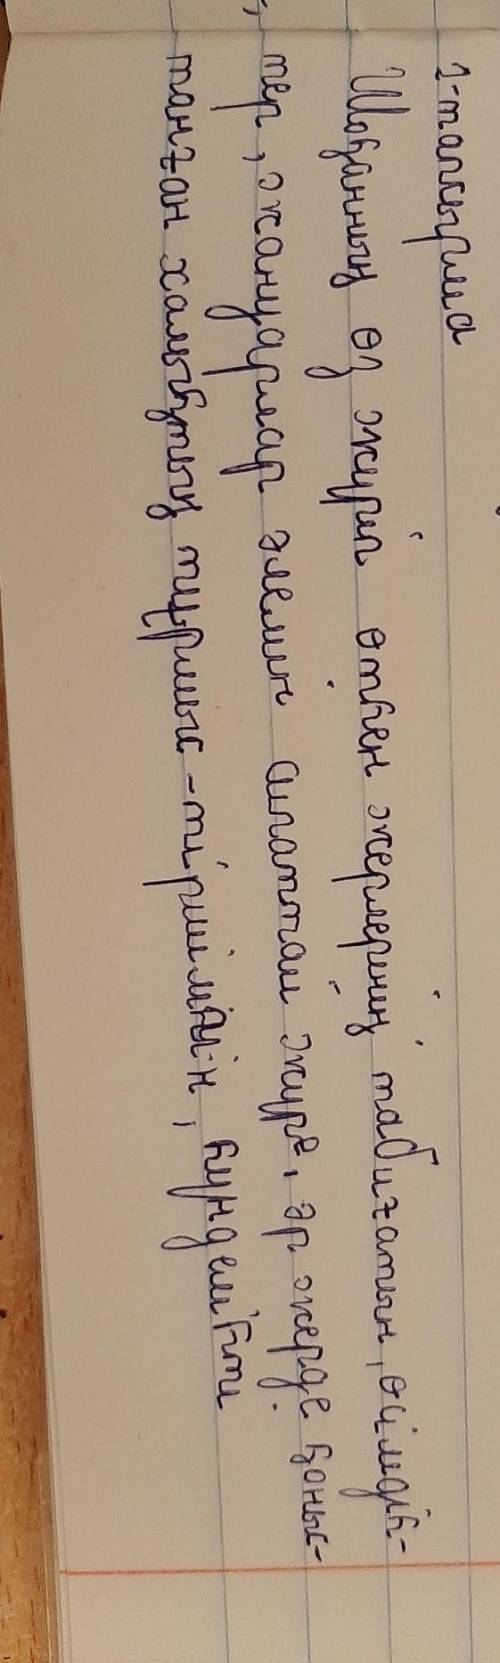 2-тапсырма
Шоқанның өзі жүріп өткен жерлерінің табиғатын, өсімдік-
тер, жануарлар әлемін сипаттай жүре, әр жерде қоныс-
танған халықтың тұрмыс-тіршілігін, күнделікті